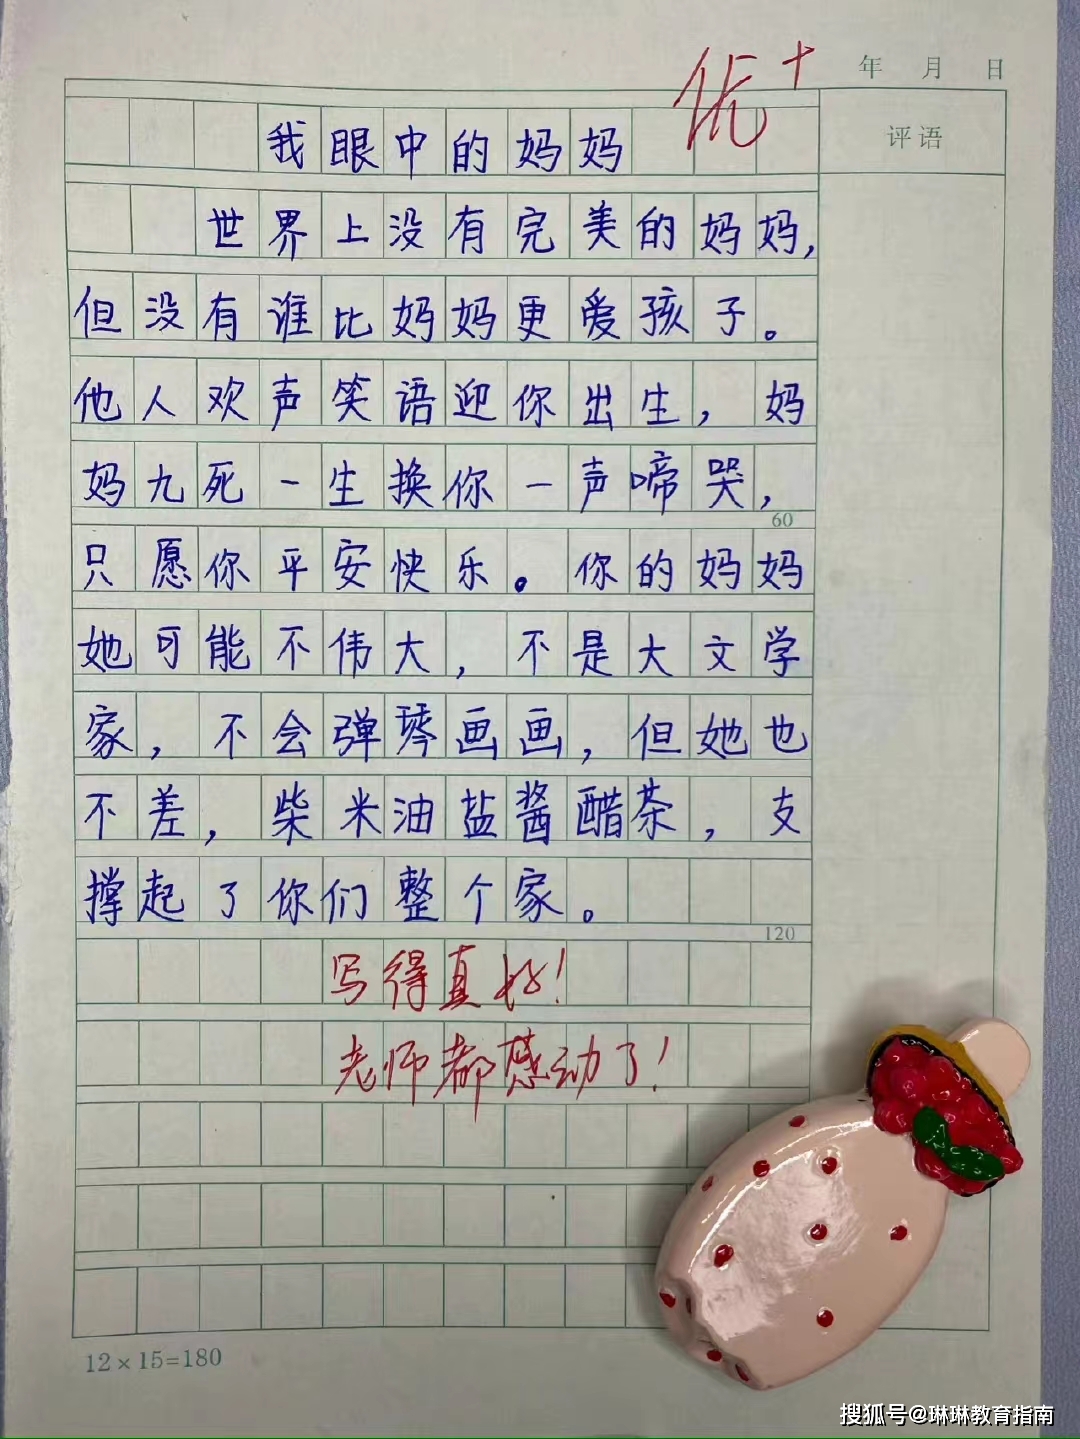 优+
年 月 日
评语
我眼中的妈妈
世界上没有完美的妈妈,
但没有谁比妈妈更爱孩子。
他人欢声笑语迎你出生,妈
妈九死一生换你一声啼哭,
60
只愿你平安快乐。你的妈妈
她可能不伟大,不是大文学
家,不会弹琴画画,但她也
不差,柴米油盐酱醋茶,支
撑起了你们整个家。
120
写得真好!
老师都感动了!
12×15=180
搜狐号@琳琳教育指南